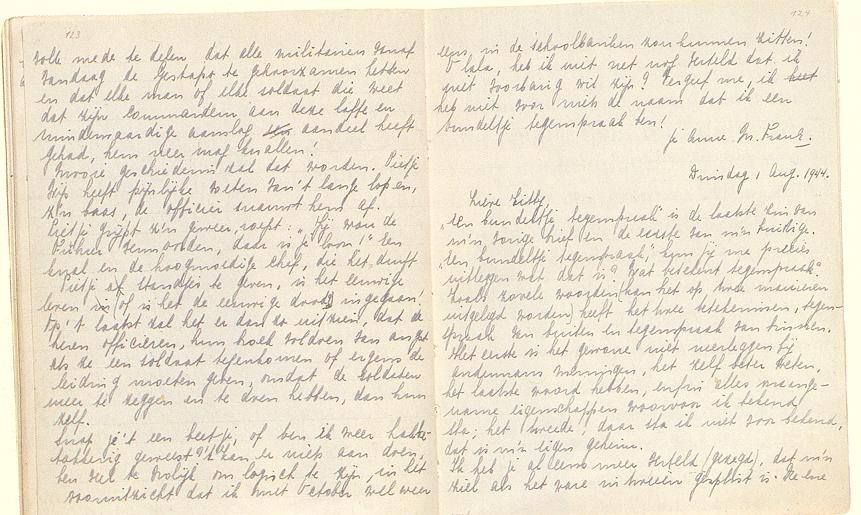 123
volk mede te delen dat alle militairen vanaf
vandaag de Gestapo te gehoorzamen hebben
en dat elke man of elke soldaat die weet
dat zijn Commandern aan deze laffe en
minderwaardige aanslag een aandeel heeft
gehad, hem neer mag knallen!
Mooie geschiedenis zal dat worden. Pietje
Wijs heeft pijnlijke voeten van 't lange lopen,
z'n baas, de officier snauwt hem af.
Pietje grijpt z'n geweer, roept: „Jij wou de
Führer vermoorden, daar is je loon!" Een
knal en de hoogmoedige chef, die het durft
Pietje standjes te geven, is het eeuwige
leven in of is het de eeuwige dood ingegaan!
Op 't laatst zal het er dan zo uitzien, dat de
heren officieren, hun broek voldoen van angst
als ze een soldaat tegenkomen of ergens de
leiding moeten geven, omdat de soldaten
meer te zeggen en te doen hebben, dan hun
zelf.
Snap je 't een beetje, of ben ik weer
geweest? 'k kan er niets aan doen,
ben veel te vrolijk om logisch te zijn, in het
vooruitzicht dat ik met October wel weer
124
eens in de schoolbanken zou kunnen zitten!
O lala, heb ik niet net nog verteld dat ik
niet voorbarig wil zijn? Vergeef me, ik heet
heb niet voor niets de naam dat ik een
bundeltje tegenspraak ben!
je Anne M. Frank.
Dinsdag 1 Aug. 1944.
Lieve Kitty,
„Een bundeltje tegenspraak" is de laatste zin van
m'n vorige brief en de eerste van m'n huidige.
„Een bundeltje tegenspraak," kun jij me precies
uitleggen wat dat is? Wat betekent tegenspraak?
Zoals zovele woorden (kan het op twee manieren
uitgelegd worden) heeft het twee betekenissen, tegen-
spraak van buiten en tegenspraak van binnen.
Het eerste is het gewone niet neerleggen bij
andermans meningen, het zelf beter weten,
het laatste woord behouden, enfin alles onaange-
name eigenschappen waarvoor ik bekend
sta; het tweede, daar sta ik niet voor bekend,
dat is m'n eigen geheim.
Ik heb je al eens meer verteld (gezegd), dat m'n
ziel als het ware in tweeën gesplitst is. De ene